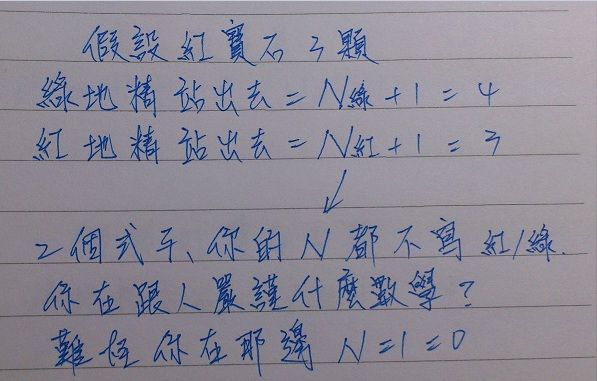 假設紅寶石3顆
綠地精站出去=N綠+1=4
紅地精站出去=N紅+1=3
2個式子、你的N都不寫紅/綠.
你在跟人嚴謹什麼數學?
難怪你在那邊N=1=0